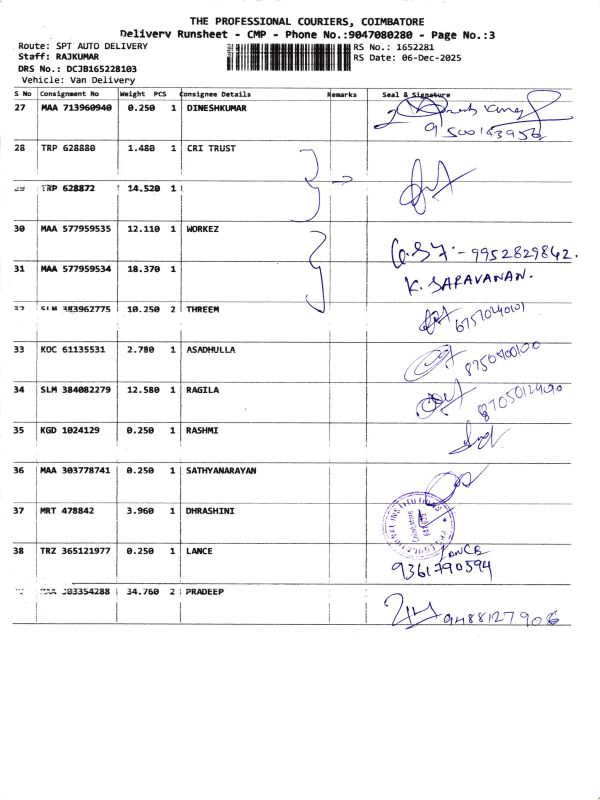 THE PROFESSIONAL COURIERS, COIMBATORE
Delivery Runsheet - CMP - Phone No.:9047080280 - Page No.:3
Route: SPT AUTO DELIVERY RS No.: 1652281
Staff: RAJKUMAR RS Date: 06-Dec-2025
DRS No.: DCJB165228103
Vehicle: Van Delivery
S No Consignment No Weight PCS Consignee Details Remarks Seal & Signature
27 MAA 713960940 0.250 1 DINESHKUMAR
28 TRP 628880 1.480 1 CRI TRUST
29 TRP 628872 14.520 1
30 MAA 577959535 12.110 1 WORKEZ
9952829842.
31 MAA 577959534 18.370 1 K. SARAVANAN.
SLM 383962775 10.250 2 THREEM
33 KOC 61135531 2.780 1 ASADHULLA
34 SLM 384082279 12.580 1 RAGILA
35 KGD 1024129 0.250 1 RASHMI
36 MAA 303778741 0.250 1 SATHYANARAYAN
37 MRT 478842 3.960 1 DHRASHINI
38 TRZ 365121977 0.250 1 LANCE LANCE
9361790594
MAA 303354288 34.760 2 PRADEEP